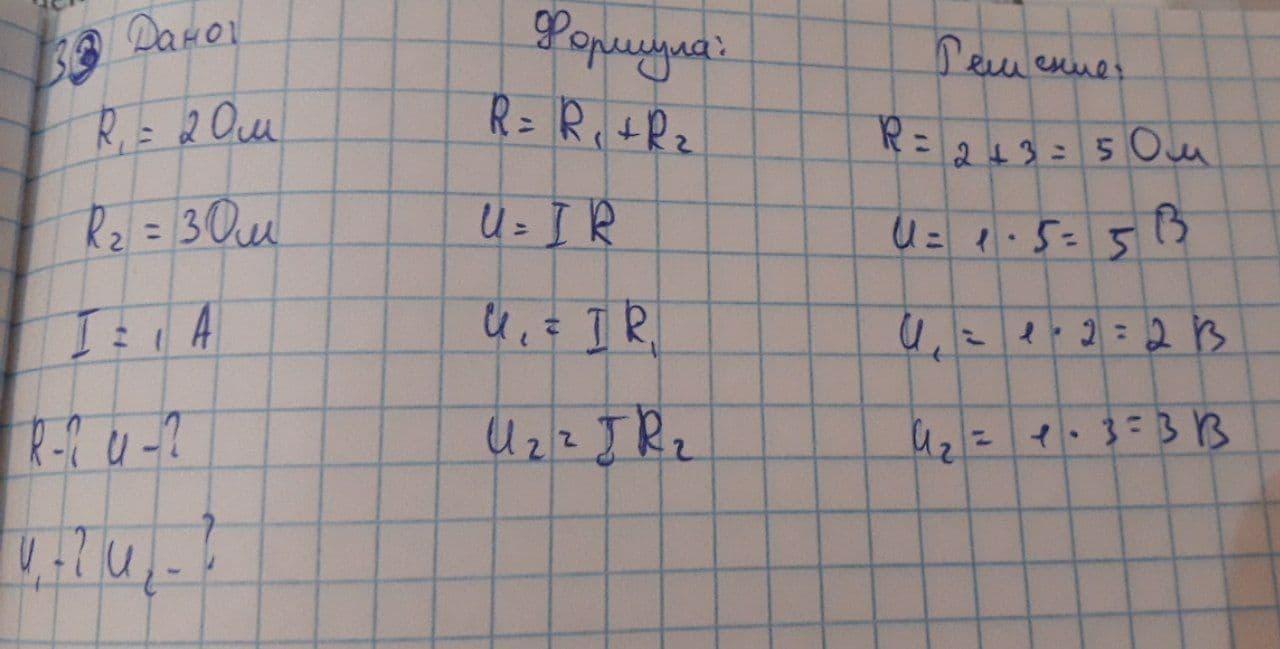 33 Дано:
R₁ = 2 Ом
R₂ = 3 Ом
I = 1 А
R-? U-?
U₁-? U₂-?
Формула:
R = R₁ + R₂
U = I R
U₁ = I R₁
U₂ = I R₂
Решение:
R = 2 + 3 = 5 Ом
U = 1 · 5 = 5 В
U₁ = 1 · 2 = 2 В
U₂ = 1 · 3 = 3 В